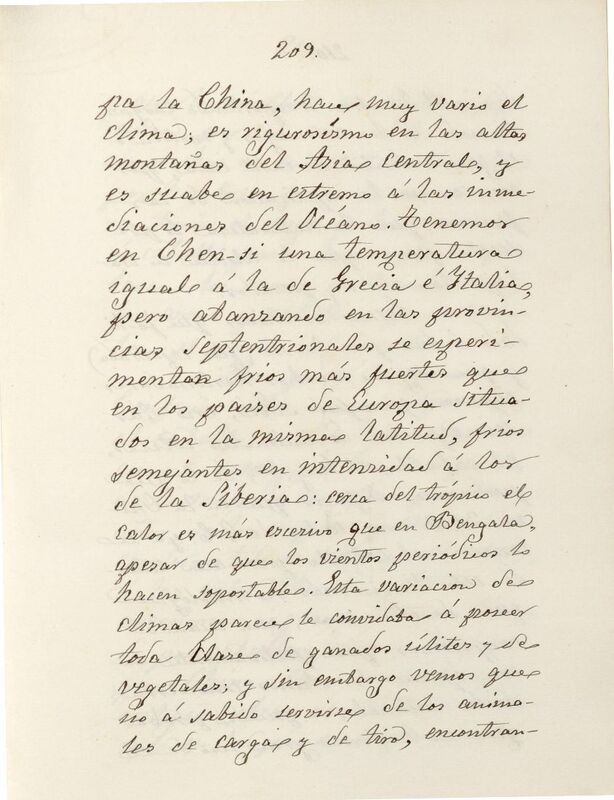 209.
pa la China, hace muy vario el
clima; es rigurosísmo en las altas
montañas del Asia central, y
es suabe en estremo á las inme-
diaciones del Océano. Tenemos
en Chen-si una temperatura
igual á la de Grecia é Italia,
pero abanzando en las provin-
cias septentrionales se esperi-
mentan frios más fuertes que
en los países de Europa situa-
dos en la misma latitud, frios
semejantes en intensidad á los
de la Siberia: cerca del trópico el
calor es más escesivo que en Bengala,
apesar de que los vientos periódicos lo
hacen soportable. Esta variacion de
climas parece le convidaba á poseer
toda clase de ganados útiles y de
vegetales; y sin embargo vemos que
no á sabido servirse de los anima-
les de carga y de tiro, encontran-